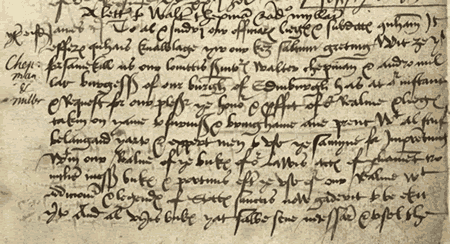 A lettre Walt chepman
James To al & sindrj our officiaris liegis & subdittis quham It
efferis quhais knawlage yir our lrez salcum greting Wit ze yt
Chepman & millar
forsamekill as our louittis Walter chepman & andro mil
lar burgessis of our burgh of Edinburgh has at or instance
& Request for our plesr ye honor & proffit of or Realme & liegis
takin on yame to furnis & bring hame ane prent wt al stuf
belangand yarto & expert men to vse ye sammyne for Imprenting
wtin our Realme of ye bukis of or Lawis actis of parliament cro
niclis mess bukis & portuus eftir ye vse of our Realme wt
addicions & legendis of Scottis sanctis now gaderit to be ekit
yarto And al vyris bukis yat salbe sene necessar & to sel the